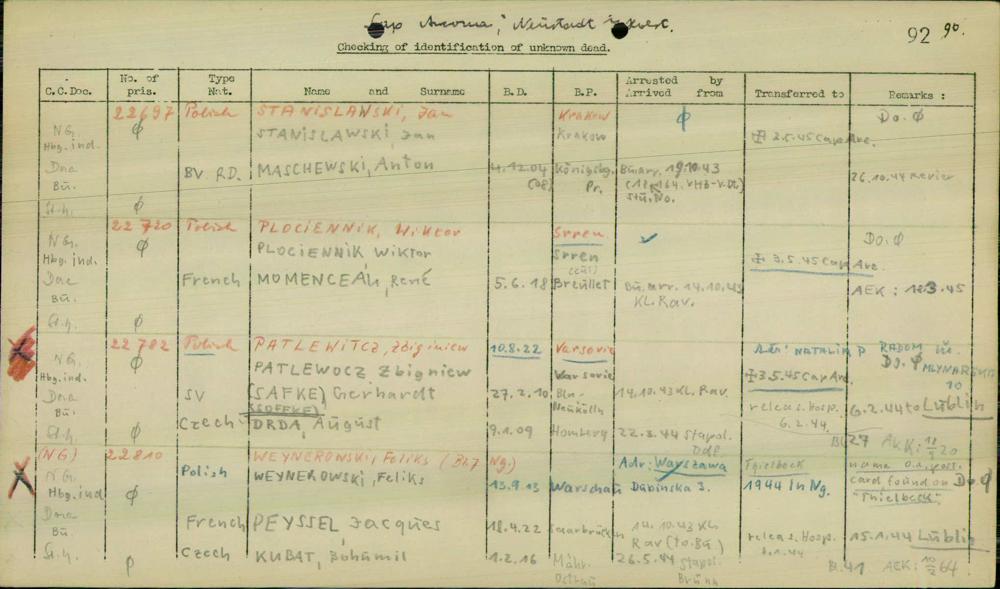 Cap Ancona, Neustadt
92 90.
Checking of identification of unknown dead.
C.C.Doc. No. of pris. Type Nat. Name and Surname B.D. B.P. Arrested by Arrived from Transferred to Remarks :
22697 Polish STANISLANSKI, Jan Krakow ϕ Do. ϕ
NG. ϕ STANISLAWSKI, Jan Krakow ✠ 3.5.45 Cap Anc.
Hbg. ind.
Dora BV. RD. MASCHEWSKI, Anton 4.12.04 Königsbg. Bu.arr. 19.10.43
Bu. (08) Pr. 26.10.44 Revier
Stu. No.
St.h. ϕ
22720 Polish PLOCIENNIK, Wiktor Srren
NG. ϕ PLOCIENNIK Wiktor Srren Do. ϕ
Hbg. ind. ✠ 3.5.45 Cap Anc.
Dae French MOMENCEAU, René 5.6.18 Breuillet Bu. arr. 14.10.43 AEK : 12.3.45
Bu. KL. Rav.
St.h. ϕ
22782 Polish PATLEWITCZ, Zbigniew 10.8.22 Varsovie Adr: NATALIA P RADOM ul.
NG. ϕ PATLEWOCZ Zbigniew Varsovie Do. ϕ MLYNARSKA
Hbg. ind. ✠ 3.5.45 Cap Anc. 10
Dora SV (SAFKE) Gerhardt 27.2.10 Bln- 14.10.43 KL. Rav. releas. Hosp. 6.2.44 to Lublin
Bu. (SOFFKE) Neukölln 6.2.44
St.h. ϕ Czech DRDA, August 9.1.09 Homberg 22.3.44 Stapol. Bl 27 AEK:
(NG) 22810 WEYNEROWSKI, Feliks (Bl.7 Ng.) Ddf.
Polish Adr: Warszawa Thielbeck name o.a. poss.
NG. WEYNEROWSKI, Feliks 13.9.13 Warschau Dabinska 3. 1944 In Ng. card found on Do ϕ
Hbg. ind. ϕ "Thielbeck"
Dora French PEYSSEL, Jacques 18.4.22 Saarbrücken 14.10.43 KL releas. Hosp. 15.1.44 Lublin
Bu. Rav (to. Bu)
St.h. ϕ Czech KUBAT, Bohumil 1.2.16 Mähr. 26.5.44 Stapol.
Ostrau Brünn Bl. 41 AEK: